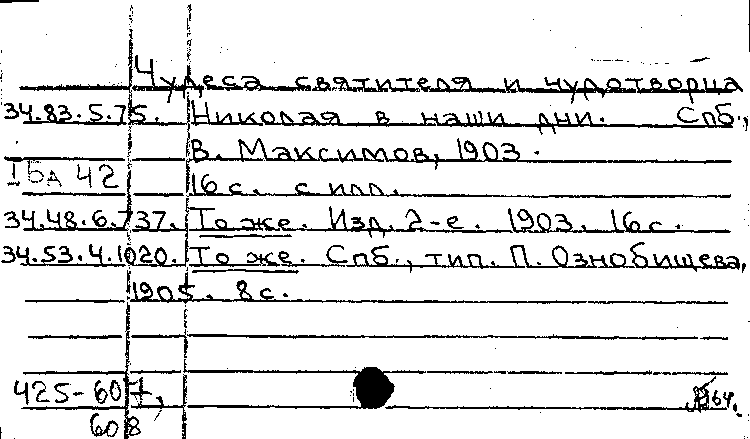 Чудеса святителя и чудотворца
34.83.5.75. Николая в наши дни. Спб.,
В. Максимов, 1903.
IБА 42
16 с. с илл.
34.48.6.737. То же. Изд. 2-е. 1903. 16 с.
34.53.4.1020. То же. Спб., тип. П. Ознобищева,
1905. 8 с.
425-607,
608
64.